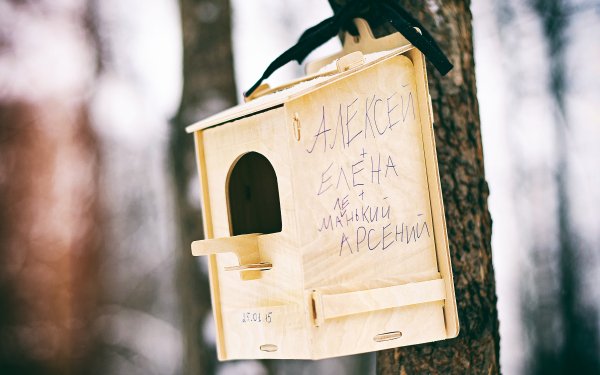 АЛЕКСЕЙ
+
ЕЛЕНА
+
МАЛЕНЬКИЙ
АРСЕНИЙ
25.01.15